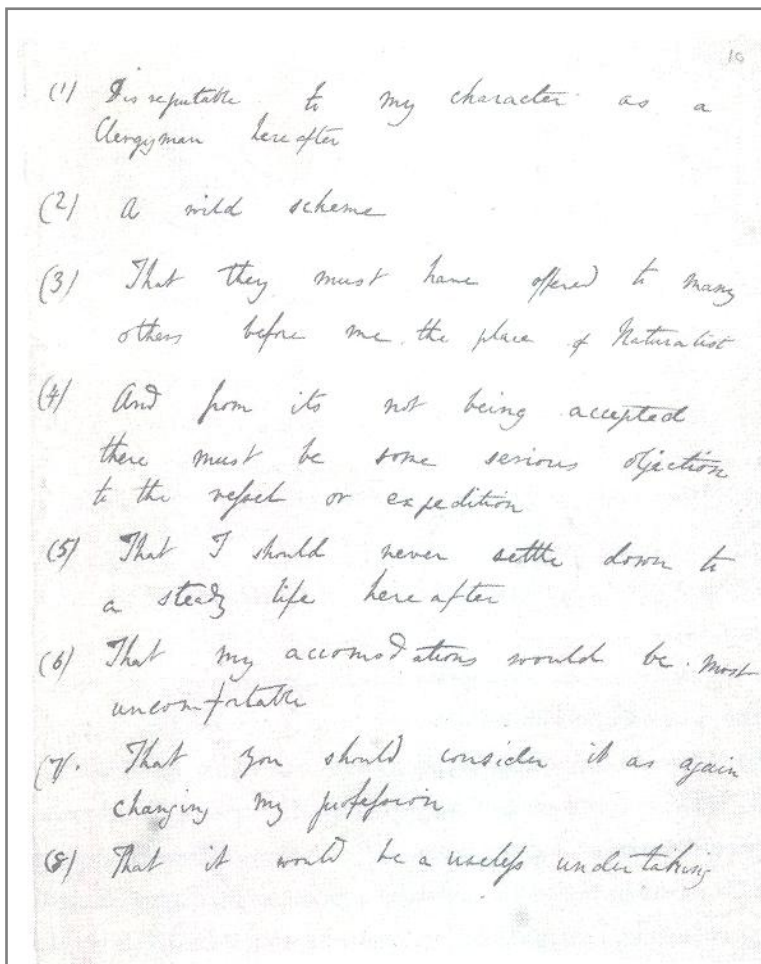 10
(1) Disreputable to my character as a
Clergyman hereafter
(2) A wild scheme
(3) That they must have offered to many
others before me. the place of Naturalist
(4) And from its not being accepted
there must be some serious objection
to the vessel or expedition
(5) That I should never settle down to
a steady life hereafter
(6) That my accomodations would be most
uncomfortable
(7. That you should consider it as again
changing my profession
(8) That it would be a useless undertaking